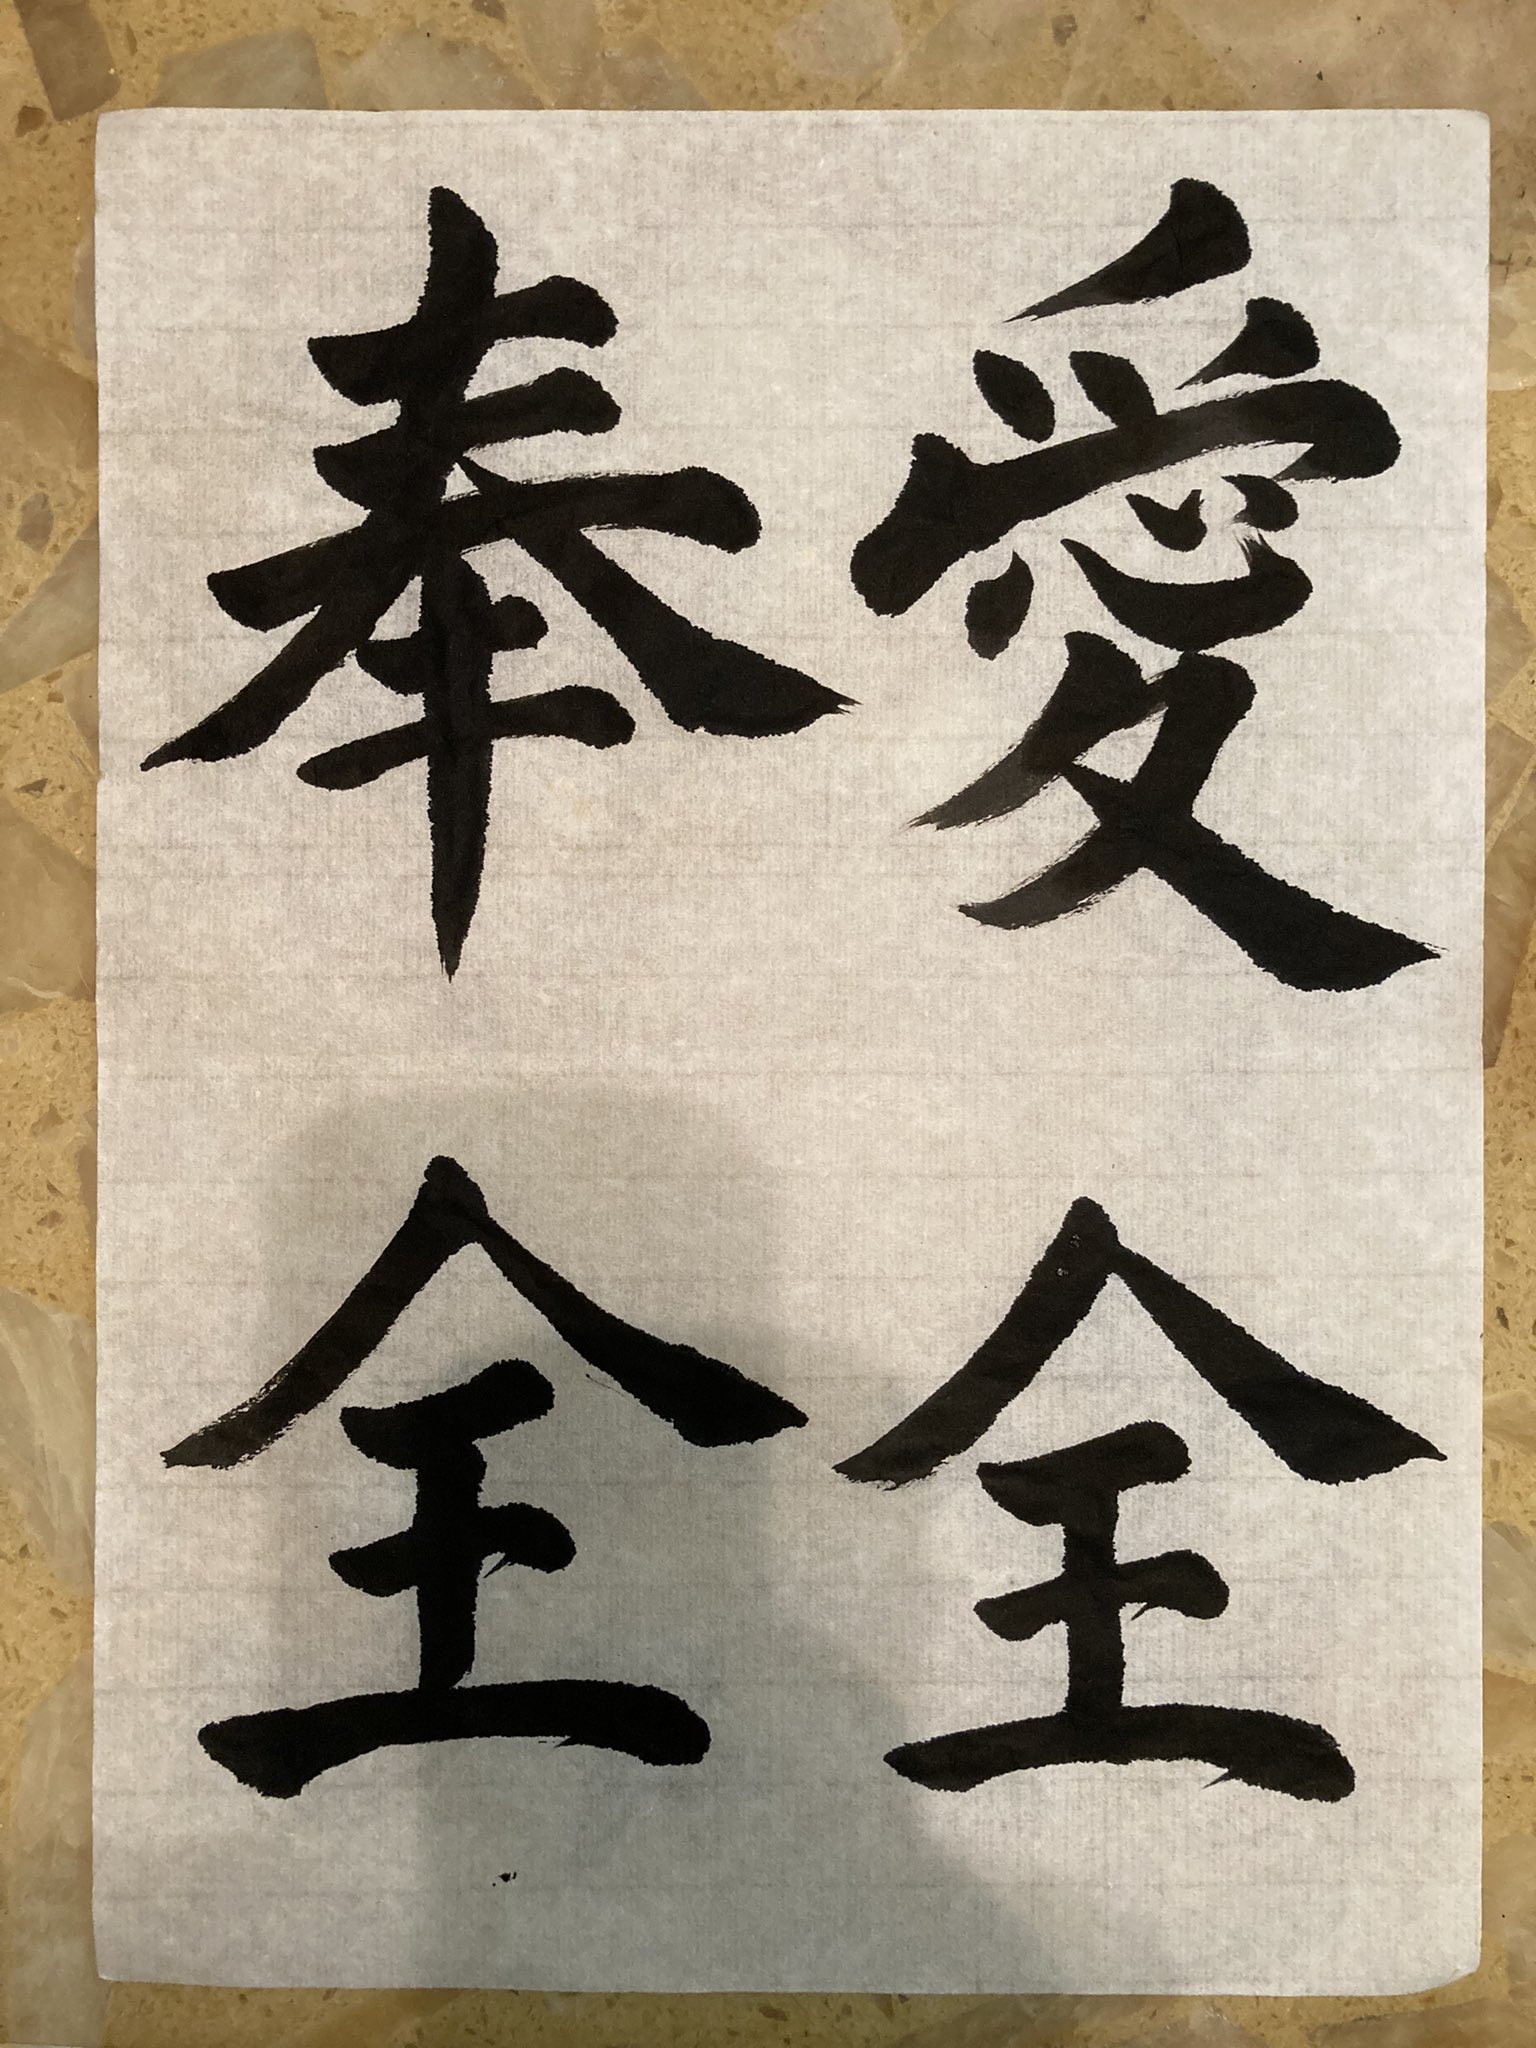 愛全
奉全